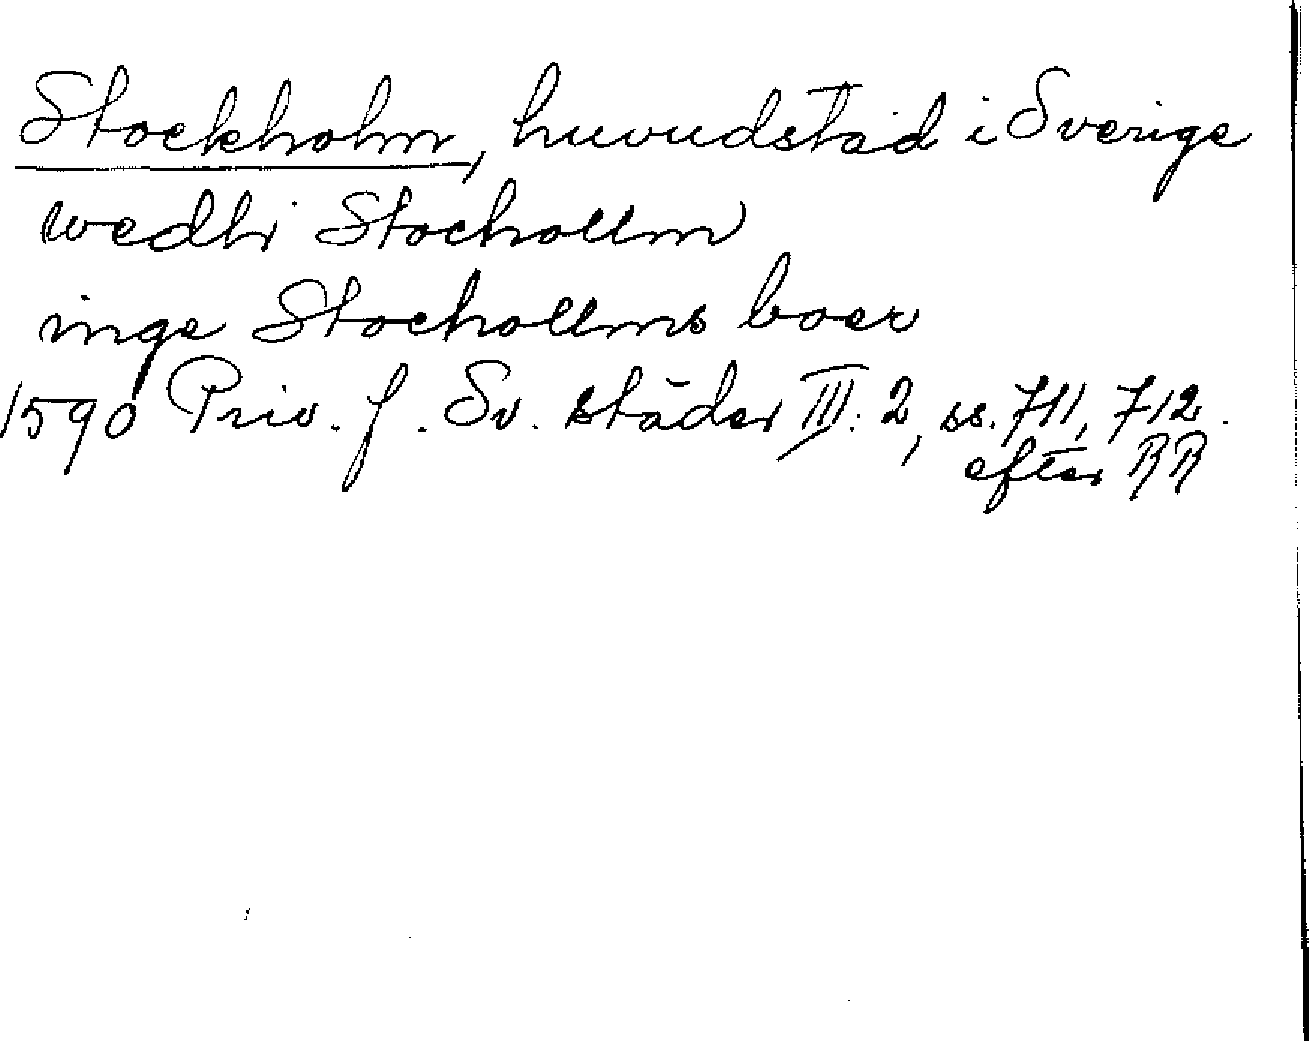 Stockholm, huvudstad i Sverige
wedhr Stochollm
inge Stochollms boer
1590 Priv. f. Sv. städer III: 2, ss. 711, 712.
efter RR